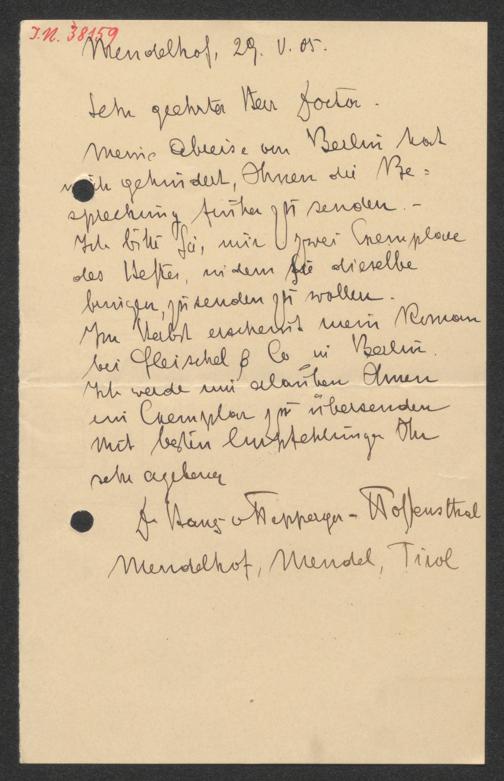 I.N. 38159
Mendelhof, 29. V. 05.
Sehr geehrter Herr Doctor.
Meine Abreise von Berlin hat
mich gehindert, Ihnen die Be=
sprechung früher zu senden. –
Ich bitte Sie, mir zwei Exemplare
des Heftes, in dem Sie dieselbe
bringen, zusenden zu wollen.
Im Herbst erscheint mein Roman
bei Fleischel & Co in Berlin.
Ich werde mir erlauben Ihnen
ein Exemplar zu übersenden
Mit besten Empfehlungen Ihr
sehr ergebener
Dr Hans v Hepperger-Hoffensthal
Mendelhof, Mendel, Tirol